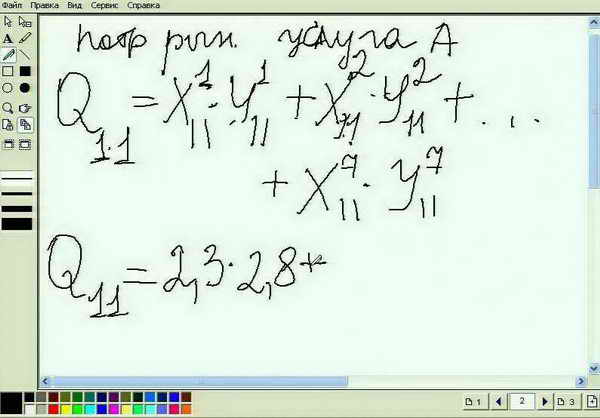 Файл Правка Вид Сервис Справка
потр рын. услуга А
Q₁.₁ = X₁₁¹ · Y₁₁¹ + X₁₁² · Y₁₁² + . . .
+ X₁₁⁷ · Y₁₁⁷
Q₁₁ = 2,3 · 2,8 +
1 2 3